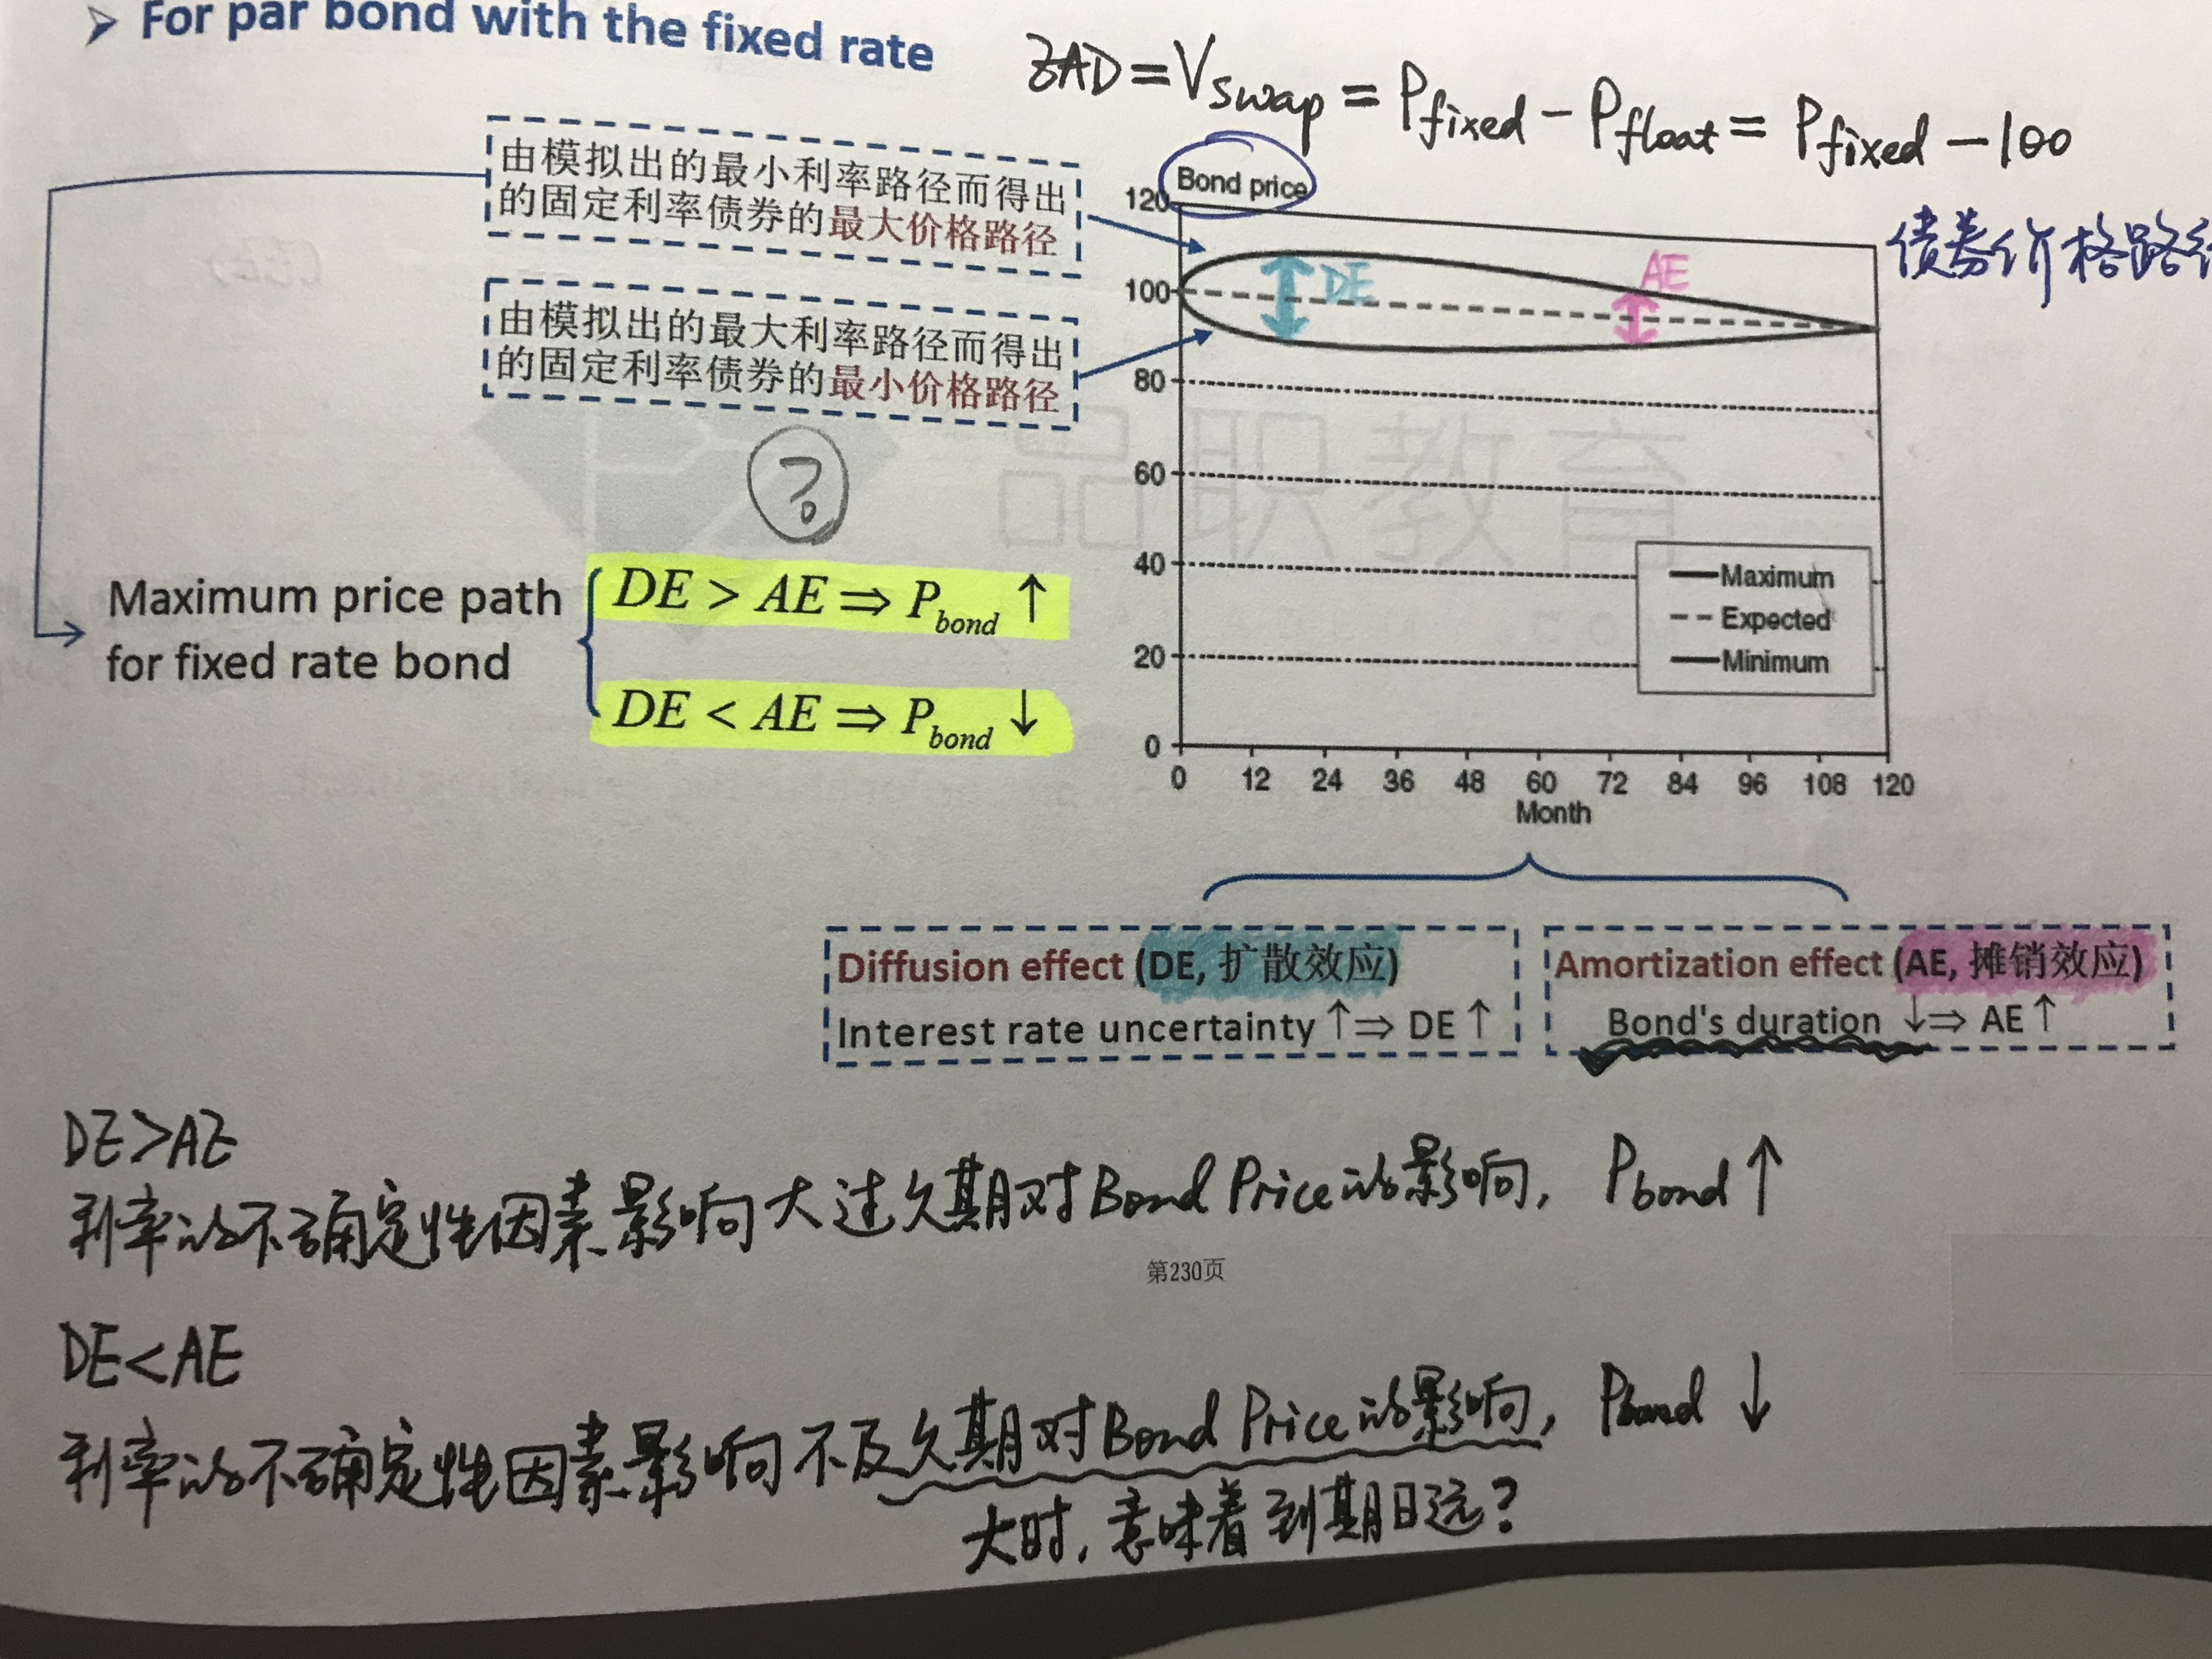 ➤ For par bond with the fixed rate
ZAD = Vswap = Pfixed − Pfloat = Pfixed − 100
由模拟出的最小利率路径而得出
的固定利率债券的最大价格路径
由模拟出的最大利率路径而得出
的固定利率债券的最小价格路径
Bond price
债券价格路
120
100
80
60
40
20
0
DE
AE
Maximum
Expected
Minimum
0 12 24 36 48 60 72 84 96 108 120
Month
品职教育
?
Maximum price path
for fixed rate bond
DE > AE ⇒ Pbond ↑
DE < AE ⇒ Pbond ↓
Diffusion effect (DE, 扩散效应)
Interest rate uncertainty ↑⇒ DE ↑
Amortization effect (AE, 摊销效应)
Bond's duration ↓⇒ AE ↑
DE>AE
利率的不确定性因素影响大过久期对Bond Price的影响, Pbond ↑
第230页
DE<AE
利率的不确定性因素影响不及久期对Bond Price的影响, Pbond ↓
大时, 意味着到期日远?